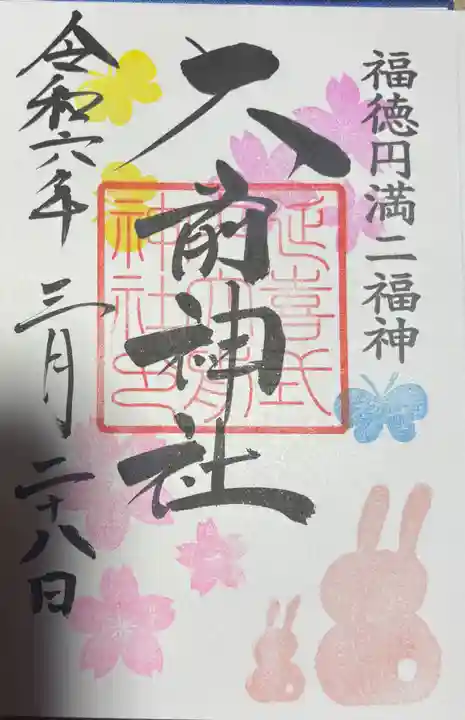 福徳円満二福神
大前神社
延喜式内大前神社之印
令和六年 三月二十八日